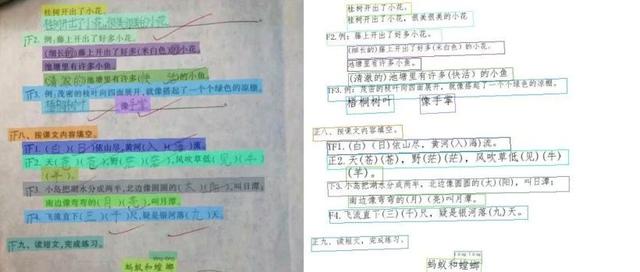 桂树开出了小花。
桂树开出了小花，很美很美的小花
下2. 例：藤上开出了好多小花。
(细长的) 藤上开出了好多(米白色)的小花。
池塘里有许多小鱼。
(清澈的)池塘里有许多(快 活)的小鱼
下3. 例：茂密的枝叶向四面展开，就像搭起了一个个绿色的凉棚。
梧桐树叶 像手掌
正八、按课文内容填空。
下1. (白)(日)依山尽，黄河(入)(海)流。
正2. 天(苍)(苍)，野(茫)(茫)，风吹草低(见)(牛)
(羊)。
下3. 小岛把湖水分成两半，北边像圆圆的(太)(阳)，叫日潭；
南边像弯弯的(月)(亮)，叫月潭。
下4. 飞流直下(三)(千)尺，疑是银河落(九)天。
正九、读短文，完成练习。
蚂蚁和螳螂
桂树开出了小花。
桂树开出了小花，很美很美的小花
下2. 例：藤上开出了好多小花。
(细长的)藤上开出了好多(米白色)的小花。
池塘里有许多小鱼。
(清澈的)池塘里有许多(快活)的小鱼
下3. 例：茂密的枝叶向四面展开，就像搭起了一个个绿色的凉棚。
梧桐树叶 像手掌
正八、按课文内容填空。
下1. (白)(日)依山尽，黄河(入)(海)流。
正2. 天(苍)(苍)，野(茫)(茫)，风吹草低(见)(牛)
(羊)。
下3. 小岛把湖水分成两半，北边像圆圆的(太)(阳)，叫日潭；
南边像弯弯的(月)(亮)，叫月潭。
下4. 飞流直下(三)(千)尺，疑是银河落(九)天。
正九、读短文，完成练习。
蚂蚁和螳螂